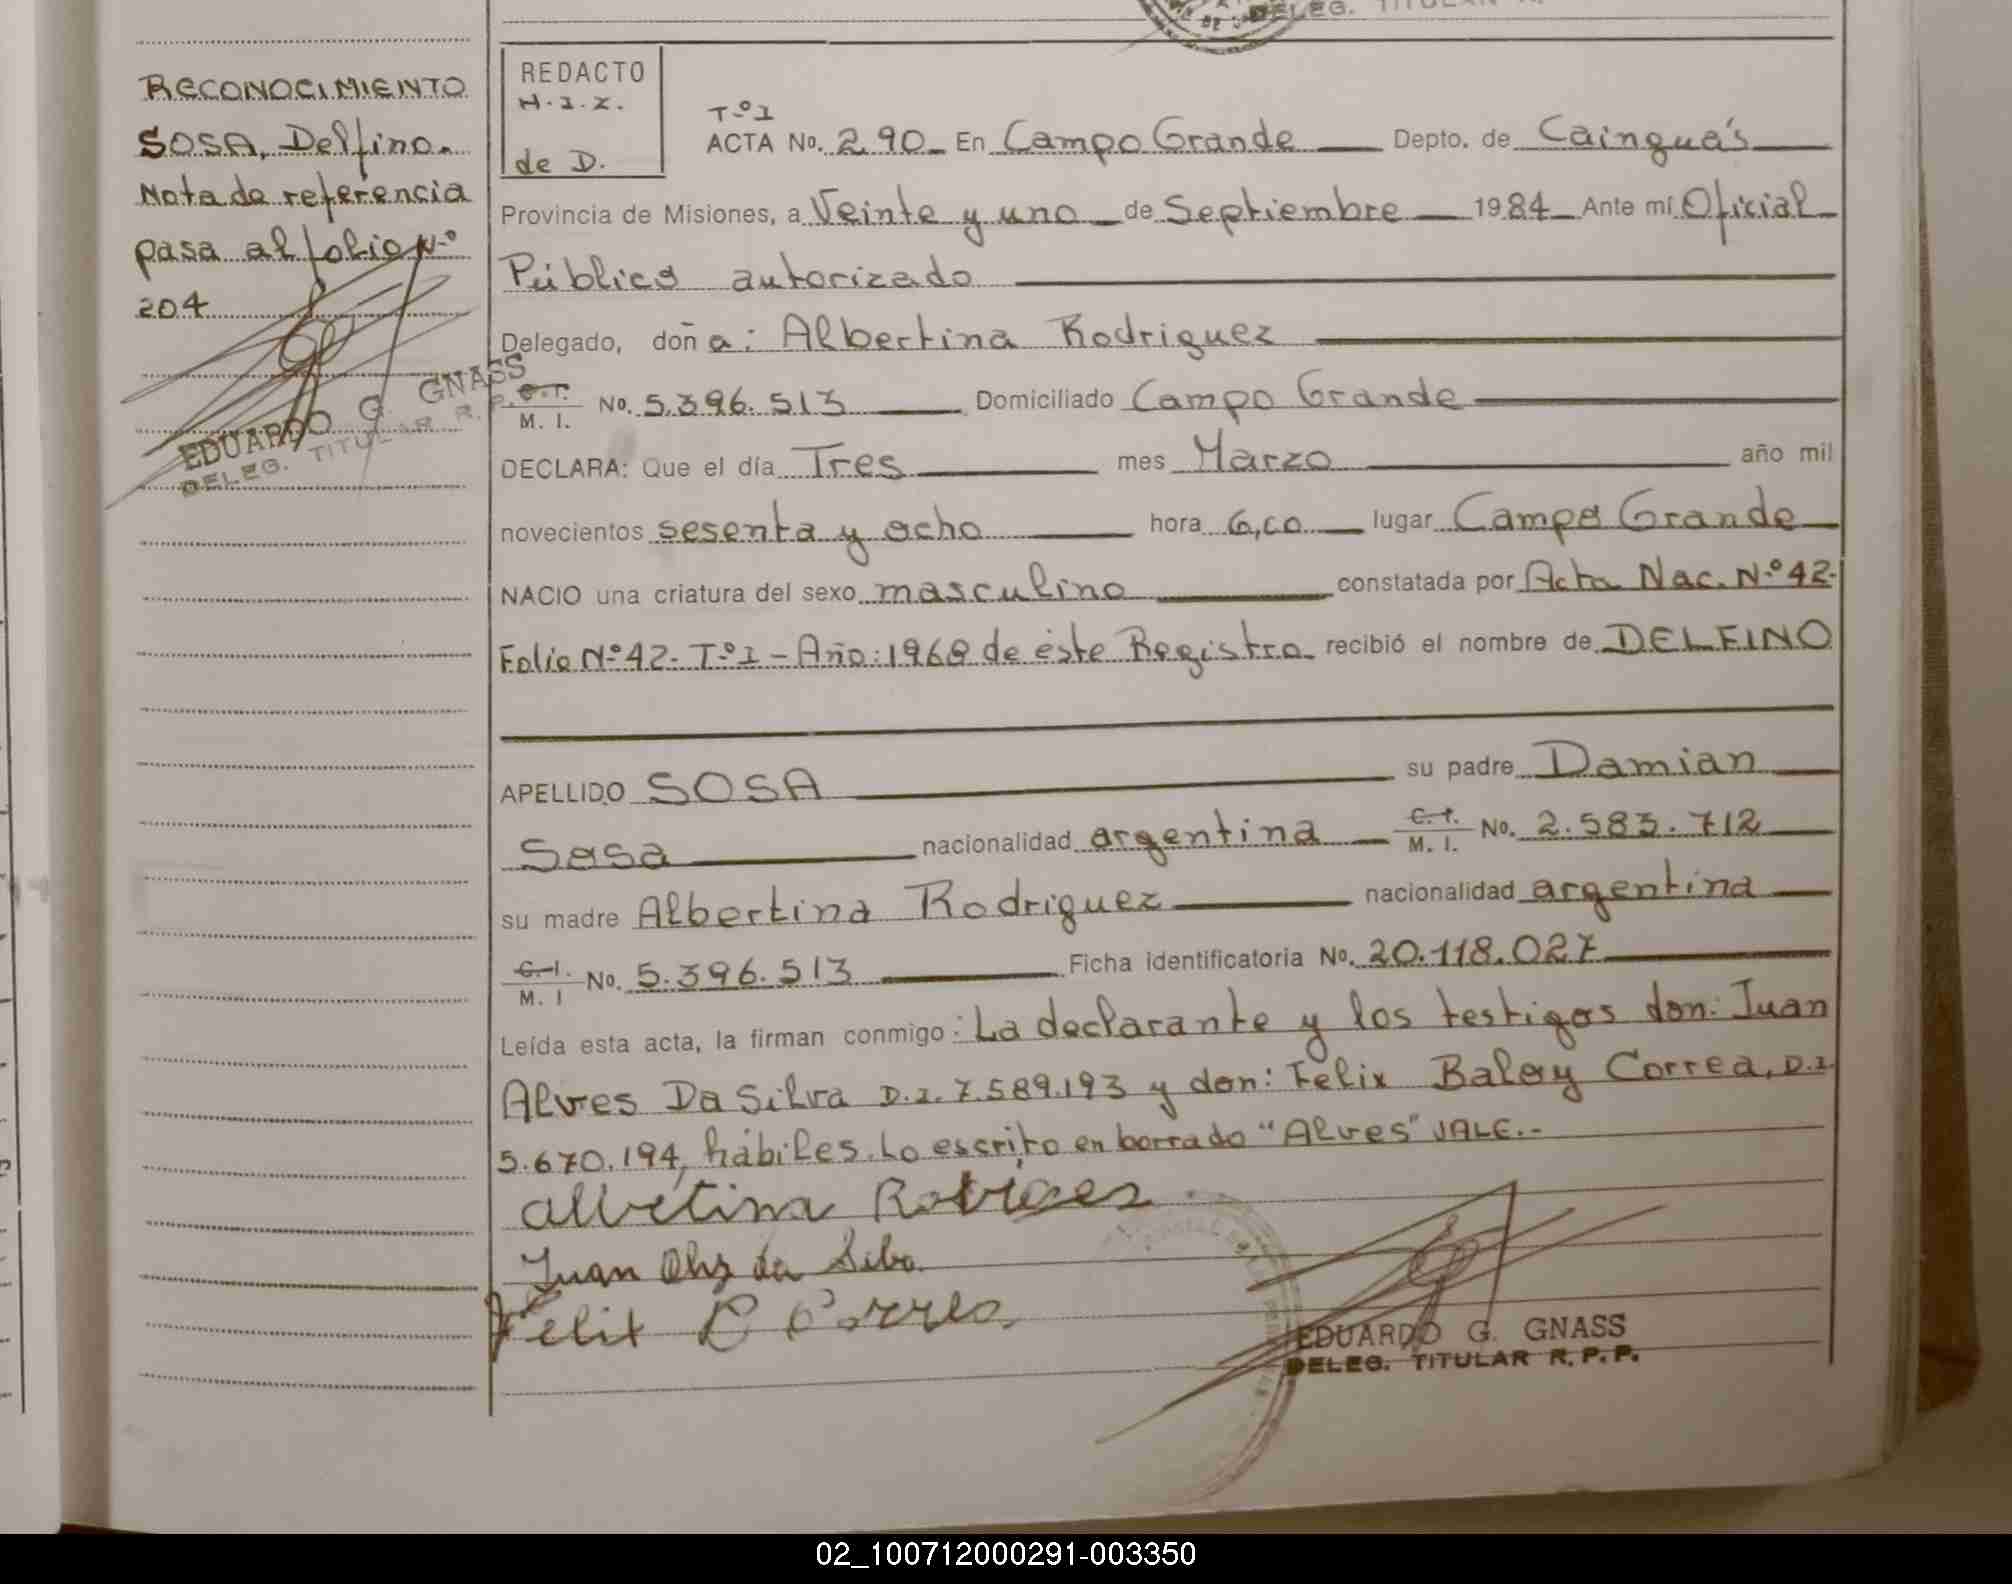 RECONOCIMIENTO
SOSA, Delfino.
Nota de referencia
pasa al folio N°
204
EDUARDO G. GNASS
DELEG. TITULAR R.P.P.
DELEG. TITULAR R.
REDACTO
H.I.Z.
de D.
T°I
ACTA No. 290 En Campo Grande Depto. de Cainguá's
Provincia de Misiones, a Veinte y uno de Septiembre 1984 Ante mí Oficial
Público autorizado
Delegado, doña: Albertina Rodriguez
C.I. M. I. No. 5.396.513 Domiciliado Campo Grande
DECLARA: Que el día Tres mes Marzo año mil
novecientos sesenta y ocho hora 6,00 lugar Campo Grande
NACIO una criatura del sexo masculino constatada por Acta Nac. N°42-
Folio N°42- T°I - Año: 1968 de éste Registro recibió el nombre de DELFINO
APELLIDO SOSA su padre Damian
Sosa nacionalidad argentina C.I. M. I. No. 2.583.712
su madre Albertina Rodriguez nacionalidad argentina
C.I. M. I No. 5.396.513 Ficha identificatoria No. 20.118.027
Leída esta acta, la firman conmigo: La declarante y los testigos don: Juan
Alves Da Silva D.I. 7.589.193 y don: Felix Correa, D.I.
5.670.194, hábiles. Lo escrito en borrado "Alves" VALE.-
Juan da
Felix Correa
EDUARDO G. GNASS
DELEG. TITULAR R.P.P.
02_100712000291-003350